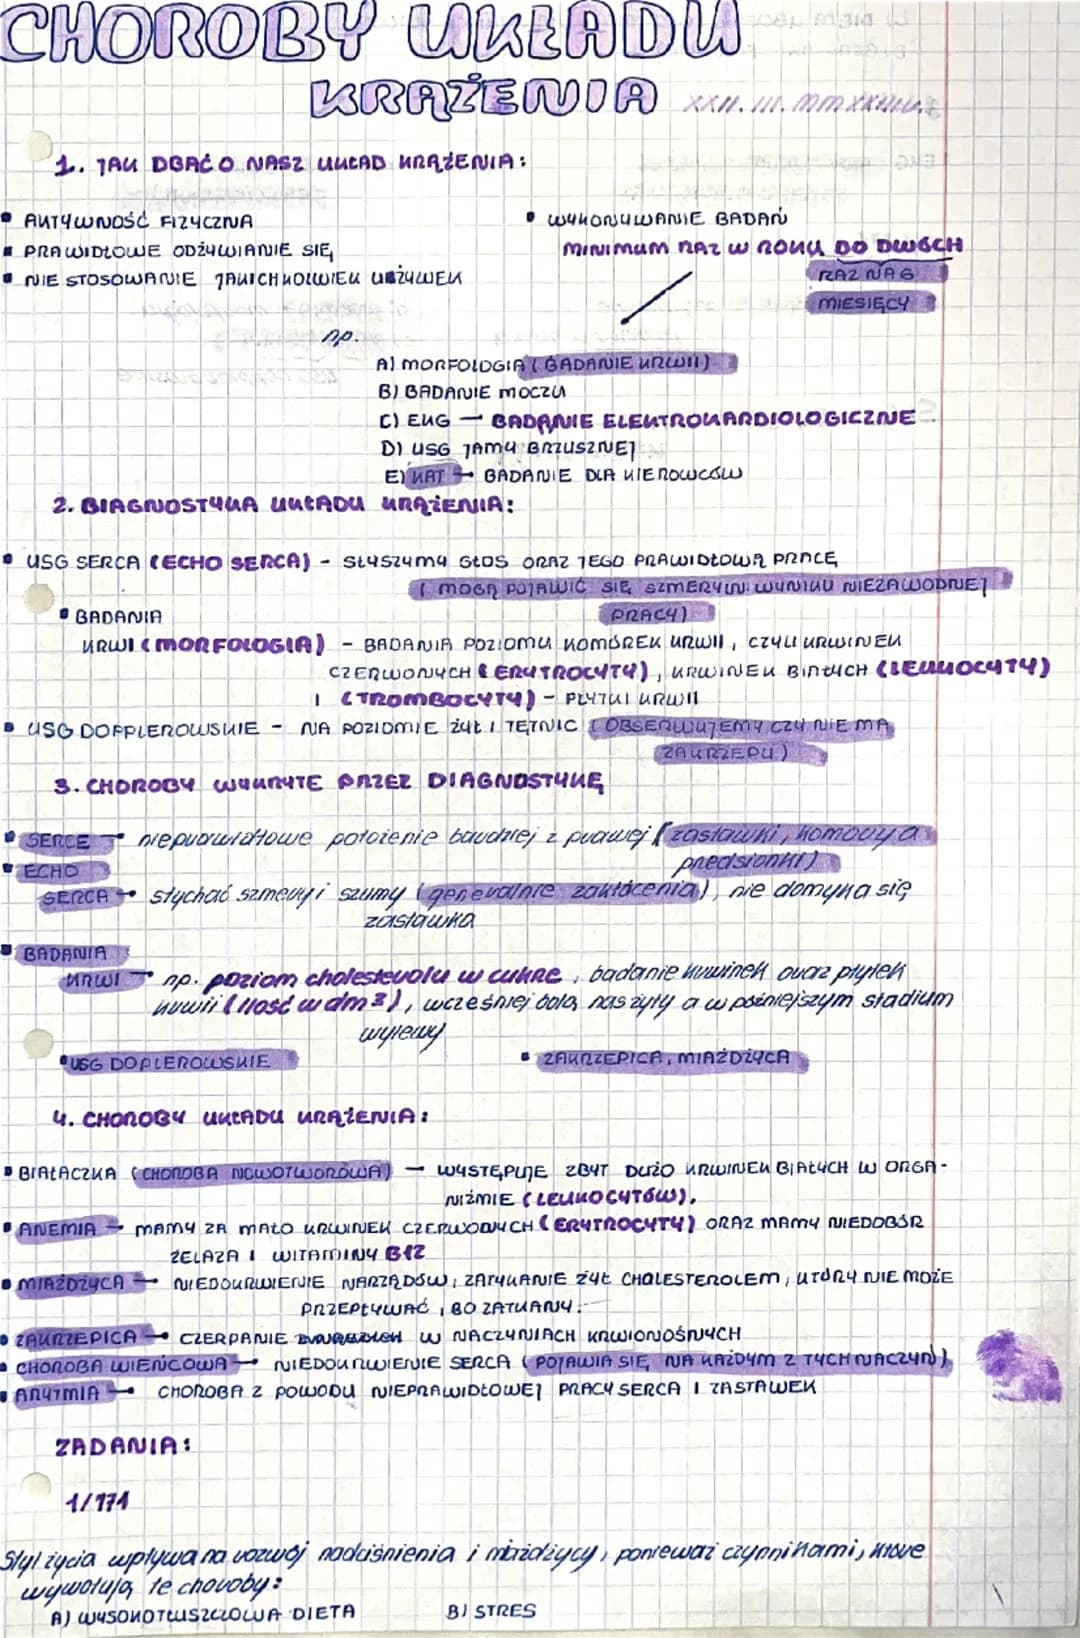 CHOROBY UKŁADU
KRĄŻENIA XXII. III. MMXXIII
1. JAK DBAĆ O NASZ UKŁAD KRĄŻENIA:
▪ AKTYWNOŚĆ FIZYCZNA
▪ PRAWIDŁOWE ODŻYWIANIE SIĘ
▪ NIE STOSOWANIE JAKICHKOLWIEK UŻYWEK
▪ WYKONYWANIE BADAŃ
MINIMUM RAZ W ROKU DO DWÓCH
RAZ NA 6
MIESIĘCY
np.
A) MORFOLOGIA (BADANIE KRWII)
B) BADANIE MOCZU
C) EKG – BADANIE ELEKTROKARDIOLOGICZNE
D) USG JAMY BRZUSZNEJ
E) KAT → BADANIE DLA KIEROWCÓW
2. DIAGNOSTYKA UKŁADU KRĄŻENIA:
▪ USG SERCA (ECHO SERCA) - SŁYSZYMY GŁOS ORAZ JEGO PRAWIDŁOWĄ PRACĘ
(MOGĄ POJAWIĆ SIĘ SZMERY W WYNIKU NIEZAWODNEJ
PRACY)
▪ BADANIA
KRWI (MORFOLOGIA) - BADANIA POZIOMU KOMÓREK KRWII, CZYLI KRWINEK
CZERWONYCH (ERYTROCYTY), KRWINEK BIAŁYCH (LEUKOCYTY)
I (TROMBOCYTY) - PŁYTKI KRWII
▪ USG DOPPLEROWSKIE - NA POZIOMIE ŻYŁ I TĘTNIC (OBSERWUJEMY CZY NIE MA
ZAKRZEPU)
3. CHOROBY WYKRYTE PRZEZ DIAGNOSTYKĘ
▪ SERCE → nieprawidłowe położenie bardziej z prawej (zastawki, komory a
predsionki)
▪ ECHO
SERCA → słychać szmery i szumy (generalnie zakłócenia), nie domyka się
zastawka
▪ BADANIA
KRWI → np. poziom cholesterolu w cukrze, badanie krwinek oraz płytek
krwii (ilość w dm³), wcześniej bolą nas żyły a w późniejszym stadium
wylewy
▪ USG DOPLEROWSKIE
▪ ZAKRZEPICA, MIAŻDŻYCA
4. CHOROBY UKŁADU KRĄŻENIA:
▪ BIAŁACZKA (CHOROBA NOWOTWOROWA) – WYSTĘPUJE ZBYT DUŻO KRWINEK BIAŁYCH W ORGA-
NIŹMIE (LEUKOCYTÓW).
▪ ANEMIA → MAMY ZA MAŁO KRWINEK CZERWONYCH (ERYTROCYTY) ORAZ MAMY NIEDOBÓR
ŻELAZA I WITAMINY B12
▪ MIAŻDŻYCA → NIEDOKRWIENIE NARZĄDÓW, ZATYKANIE ŻYŁ CHOLESTEROLEM, KTÓRY NIE MOŻE
PRZEPŁYWAĆ, BO ZATKANY.
▪ ZAKRZEPICA → CZERPANIE W NACZYNIACH KRWIONOŚNYCH
▪ CHOROBA WIEŃCOWA → NIEDOKRWIENIE SERCA (POJAWIA SIĘ NA KAŻDYM Z TYCH NACZYŃ)
▪ ARYTMIA → CHOROBA Z POWODU NIEPRAWIDŁOWEJ PRACY SERCA I ZASTAWEK
ZADANIA:
1/171
Styl życia wpływa na rozwój nadciśnienia i miażdżycy, ponieważ czynnikami, które
wywołują te choroby:
A) WYSOKOTŁUSZCZOWA DIETA
B) STRES